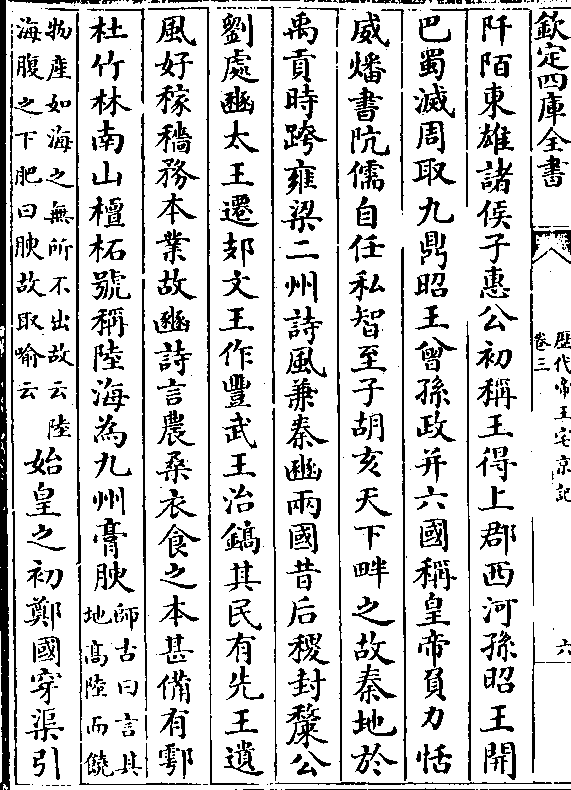 欽定四庫全書
歷代帝王宅京記
卷三
六
阡陌東雄諸侯子惠公初稱王得上郡西河孫昭王開
巴蜀滅周取九鼎昭王曾孫政并六國稱皇帝負力怙
威燔書阬儒自任私智至子胡亥天下畔之故秦地於
禹貢時跨雍梁二州詩風兼秦豳兩國昔后稷封斄公
劉處豳太王遷郊文王作豐武王治鎬其民有先王遺
風好稼穡務本業故豳詩言農桑衣食之本甚備有鄠
杜竹林南山檀柘號稱陸海為九州膏腴師古曰言其
地高陸而饒
物產如海之無所不出故云陸
海腹之下肥曰腴故取喻云始皇之初鄭國穿渠引